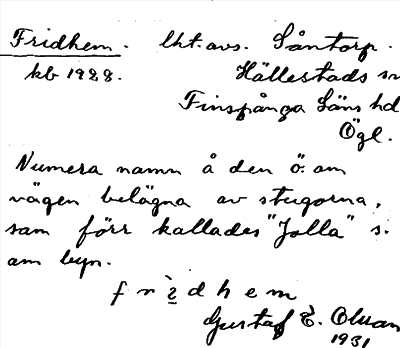 Fridhem. lht. avs. Såntorp.
kb 1928. Hällestads sn
Finspånga läns hd
Ögl.
Numera namn å den ö. om
vägen belägna av stugorna,
som förr kallades "Jolla" s.
om byn.
frìdhem
Gustaf E.
1931